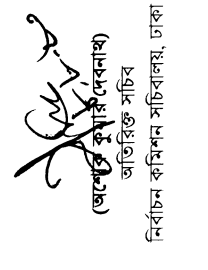 (অশোক কুমার দেবনাথ)
অতিরিক্ত সচিব
নির্বাচন কমিশন সচিবালয়, ঢাকা